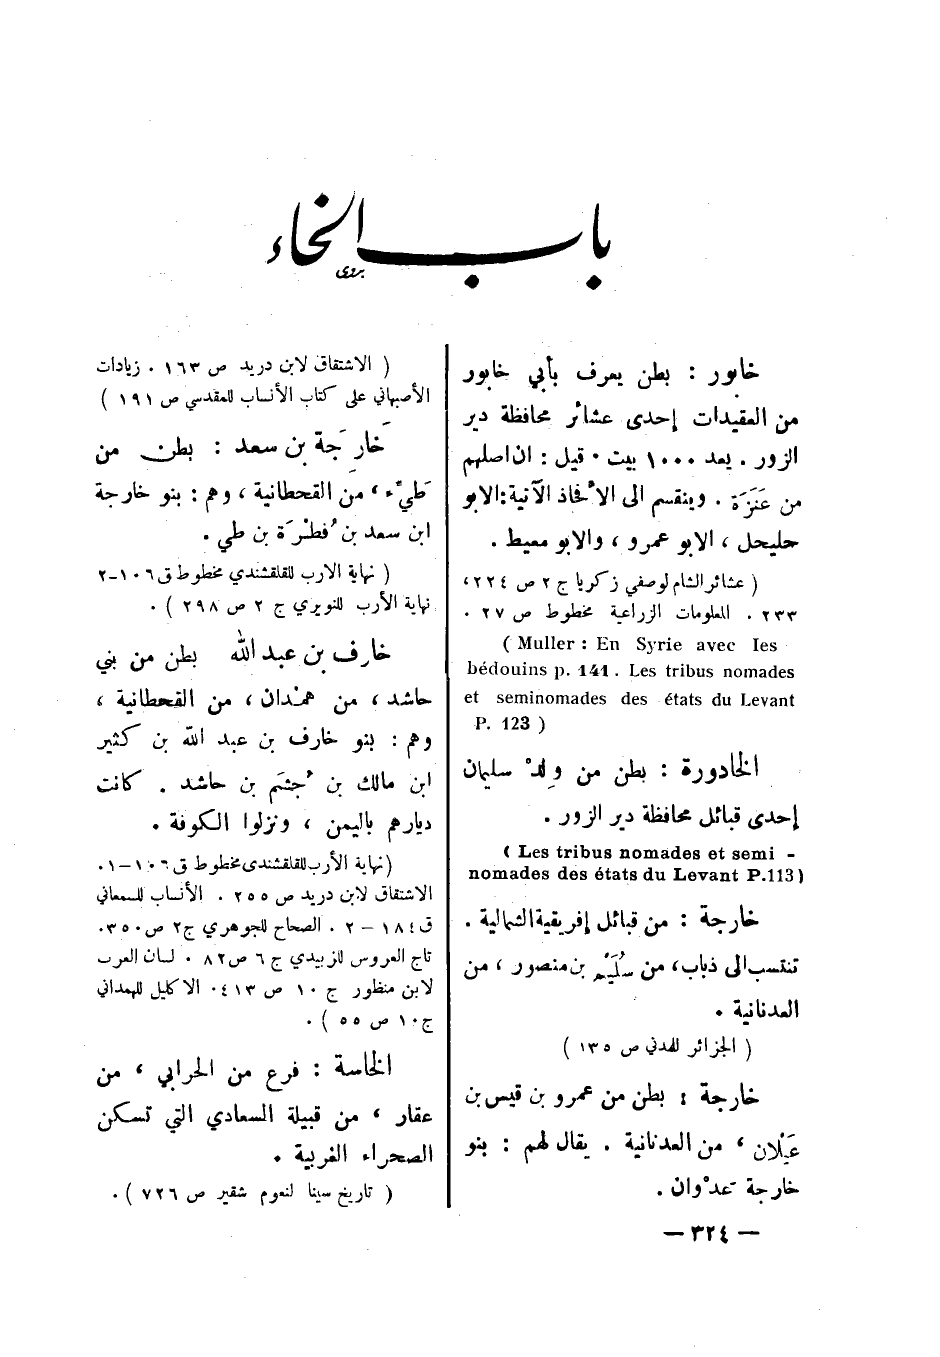 باب الخاء
بدوي
خابور : بطن يعرف بأبي خابور
من العقيدات إحدى عشائر محافظة دير
الزور . يعد ١٠٠٠ بيت . قيل : ان اصلهم
من عَنَزَة . وينقسم الى الأفخاذ الآتية:الابو
حليحل ، الابو عمرو ، والابو معيط .
( عشائر الشام لوصفي زكريا ج ٢ ص ٢٢٤،
٢٣٣ . المعلومات الزراعية مخطوط ص ٢٧ .
( Muller : En Syrie avec les
bédouins p. 141 . Les tribus nomades
et seminomades des états du Levant
P. 123 )
الخادورة : بطن من ولد سليمان
إحدى قبائل محافظة دير الزور .
( Les tribus nomades et semi -
nomades des états du Levant P.113)
خارجة : من قبائل إفريقية الشمالية .
تنتسب الى ذباب، من سُلَيْم بن منصور ، من
العدنانية .
( الجزائر للمدني ص ١٣٥ )
خارجة : بطن من عمرو بن قيس بن
عَيْلان ، من العدنانية . يقال لهم : بنو
خارجة عَدْوان .
( الاشتقاق لابن دريد ص ١٦٣ . زيادات
الأصبهاني على كتاب الأنساب للمقدسي ص ١٩١ )
خَارِجَة بن سعد : بطن من
طَيّء ، من القحطانية ، وهم : بنو خارجة
ابن سعد بن فُطْرَة بن طي .
( نهاية الارب للقلقشندي مخطوط ق ١٠٦-٢
نهاية الأرب للنويري ج ٢ ص ٢٩٨ ) .
خارف بن عبد الله بطن من بني
حاشد ، من همْدان ، من القحطانية ،
وهم : بنو خارف بن عبد الله بن كثير
ابن مالك بن جُشَم بن حاشد . كانت
ديارهم باليمن ، ونزلوا الكوفة .
(نهاية الأرب للقلقشندي مخطوط ق ١٠٦-١.
الاشتقاق لابن دريد ص ٢٥٥ . الأنساب للسمعاني
ق ١٨٤ - ٢ . الصحاح للجوهري ج٢ ص ٣٥٠.
تاج العروس للزبيدي ج ٦ ص ٨٢ . لسان العرب
لابن منظور ج ١٠ ص ٤١٣. الاكليل للهمداني
ج ١٠ ص ٥٥ ) .
الخاسة : فرع من الحرابي ، من
عقار ، من قبيلة السعادي التي تسكن
الصحراء الغربية .
( تاريخ سينا لنعوم شقير ص ٧٢٦ ) .
— ٣٢٤ —